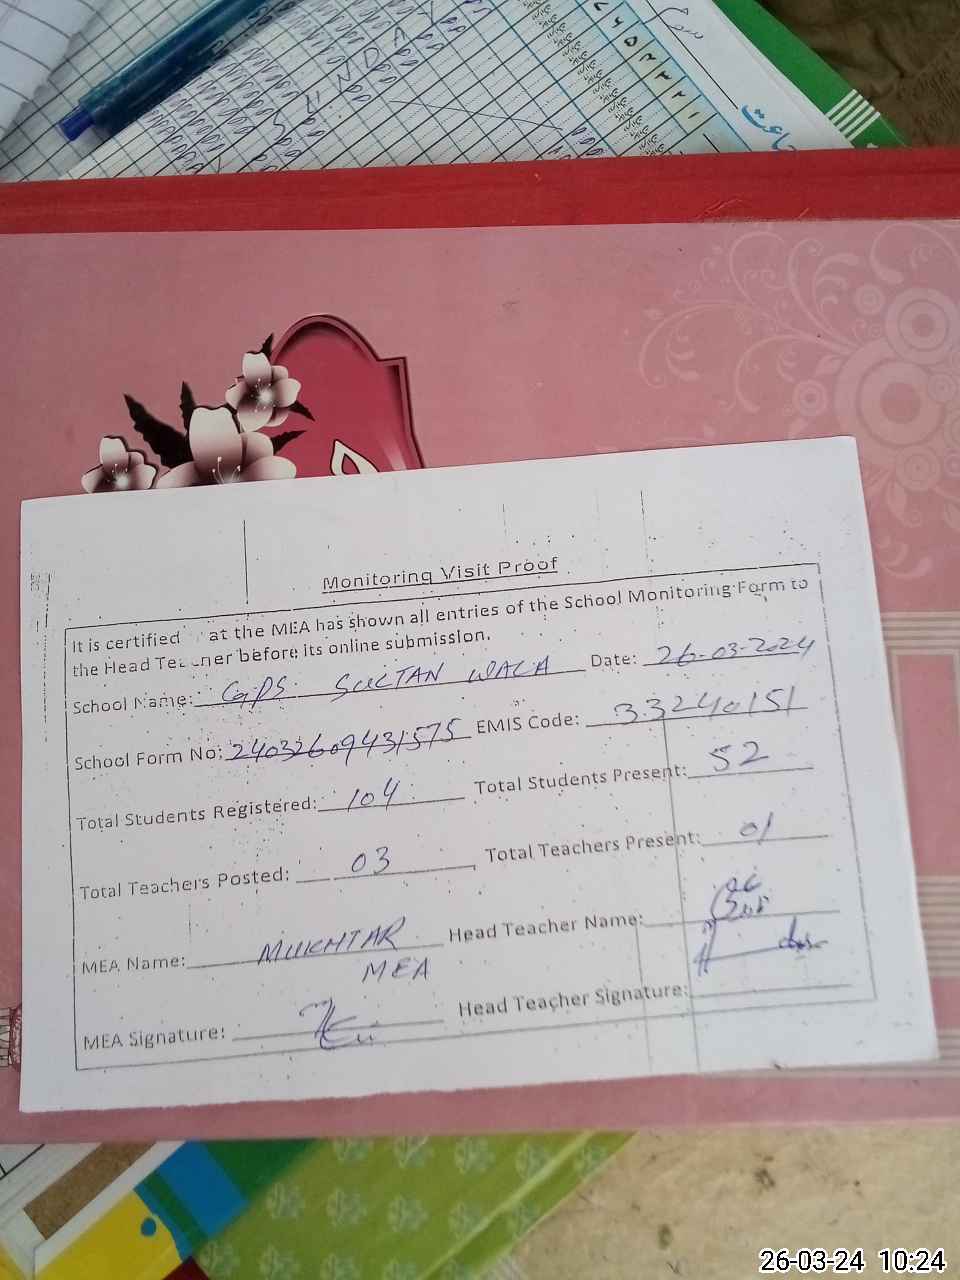 جماعت
Monitoring Visit Proof
It is certified at the MEA has shown all entries of the School Monitoring Form to
the Head Teacher before its online submission.
School Name: GPS SULTAN WALA Date: 26-03-2024
School Form No: 24032609431575 EMIS Code: 33240151
Total Students Registered: 104 Total Students Present: 52
Total Teachers Posted: 03 Total Teachers Present: 01
MEA Name: MUKHTAR Head Teacher Name:
MEA
MEA Signature: Head Teacher Signature:
26-03-24 10:24